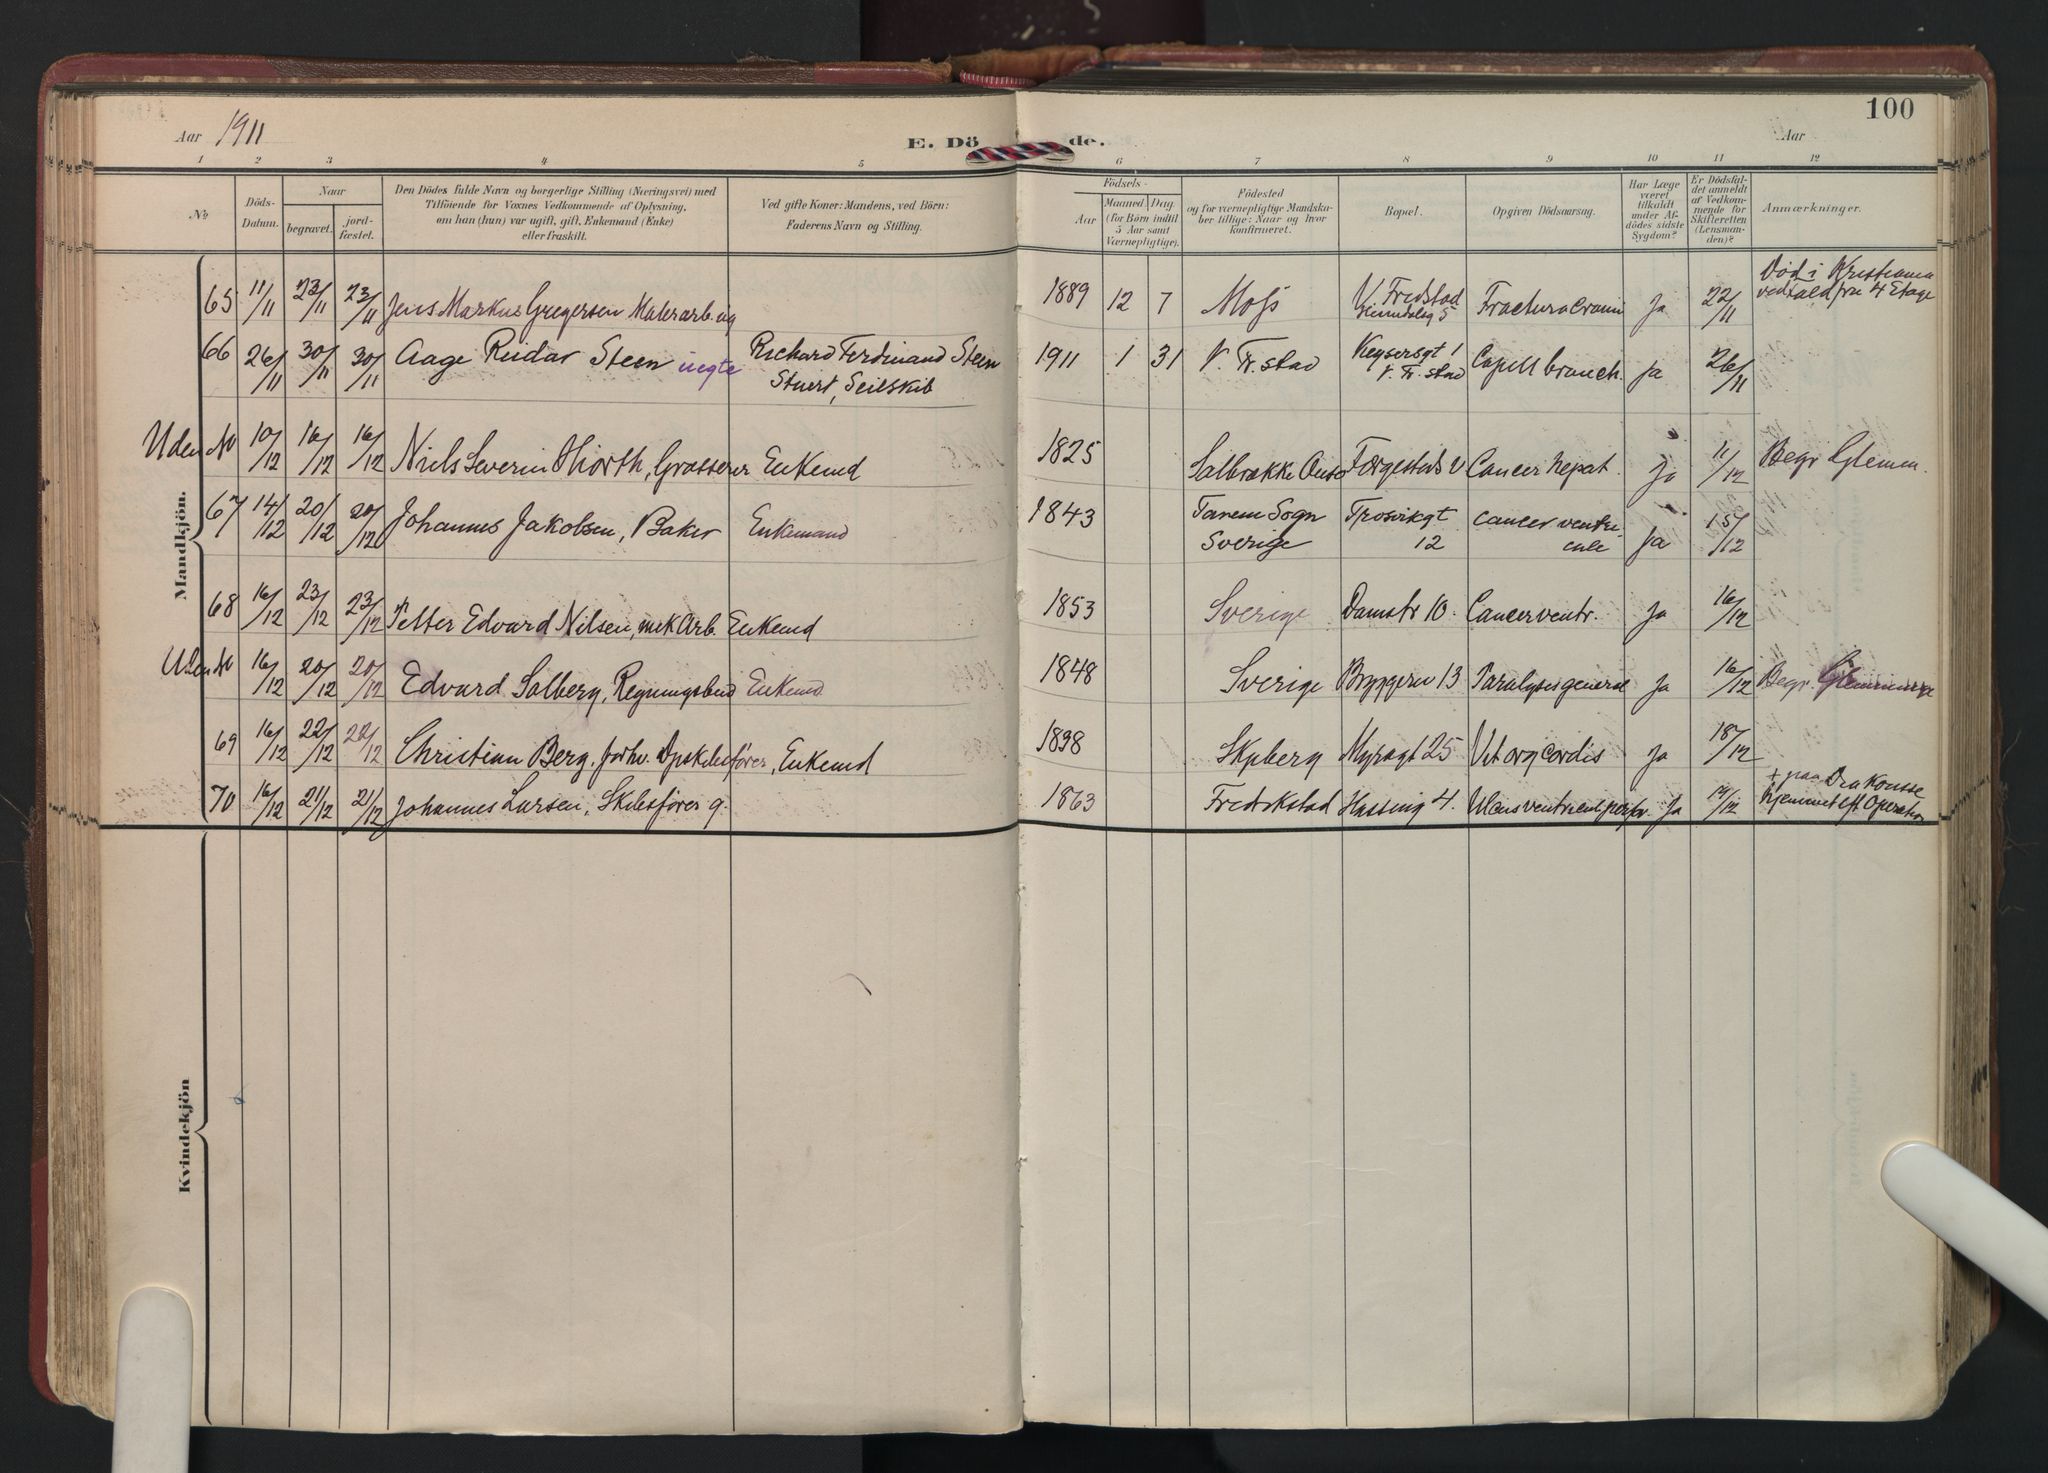 100
Aar 1911
E. Dö de.
Aar
1 2 3 4 5 6 7 8 9 10 11 12
№
Döds-
Datum.
Naar
begravet.
jord-
fæstet.
Den Dödes fulde Navn og borgerlige Stilling (Næringsvei) med
Tilföiende for Voxnes Vedkommende af Oplysning,
om han (hun) var ugift, gift, Enkemand (Enke)
eller fraskilt.
Ved gifte Koner: Mandens, ved Börn:
Faderens Navn og Stilling.
Födsels-
Aar
Maaned Dag
(for Börn indtil
5 Aar samt
Værnepligtige).
Födested
og for værnepligtige Mandska-
ber tillige: Naar og hvor
konfirmeret.
Bopæl.
Opgiven Dödsaarsag.
Har Læge
været
tilkaldt
under Af-
dödes sidste
Sygdom?
Er Dödsfal-
det anmeldt
af Vedkom-
mende for
Skifteretten
(Lensman-
den)?
Anmærkninger.
Mandkjön.
65 11/11 23/11 23/11 Jens Markus Gregersen Malerarb. ug 1889 12 7 Moss V Fredstad Fractura cranii Ja 22/11 Död i Kristiania
ved fald fra 4 Etage
66 26/11 30/11 30/11 Aage Reidar Steen uegte Richard Ferdinand Steen 1911 1 31 V. Fr.stad Keysersgt 1 Capill bronch. Ja 26/11
Stuert, Seilskib V. Fr. stad
Uden № 10/12 16/12 16/12 Niels Severin Hiorth, Grosserer Enkemd 1825 Solbrække Onsø Torgestads v Cancer hepat. Ja 11/12 Begr Glemm.
67 14/12 20/12 20/12 Johannes Jakobsen, Baker Enkemand 1843 Tanem Sogn Trosvikgt Cancer ventri-
Sverige 12 cule Ja 15/12
68 16/12 23/12 23/12 Petter Edvard Nilsen, mek Arb. Enkemd 1853 Sverige Damstr 10. Cancer ventr. Ja 16/12
Uden № 16/12 20/12 20/12 Edvard Solberg, Regningsbud Enkemd 1848 Sverige Bryggeriv 13 Paralysis general Ja 16/12 Begr.
69 16/12 22/12 22/12 Christian Berg, forhv. Dpskibsfører, Enkemd 1838 Skjeberg Myragt 25 Vit org cordis Ja 18/12
70 16/12 21/12 21/12 Johannes Larsen, Skibsfører g. 1863 Fredrikstad Hassing 4. Ulcus ventriculi perfor. Ja 19/12 + paa Diakonisse
hjemmet eft Operation
Kvindekjön